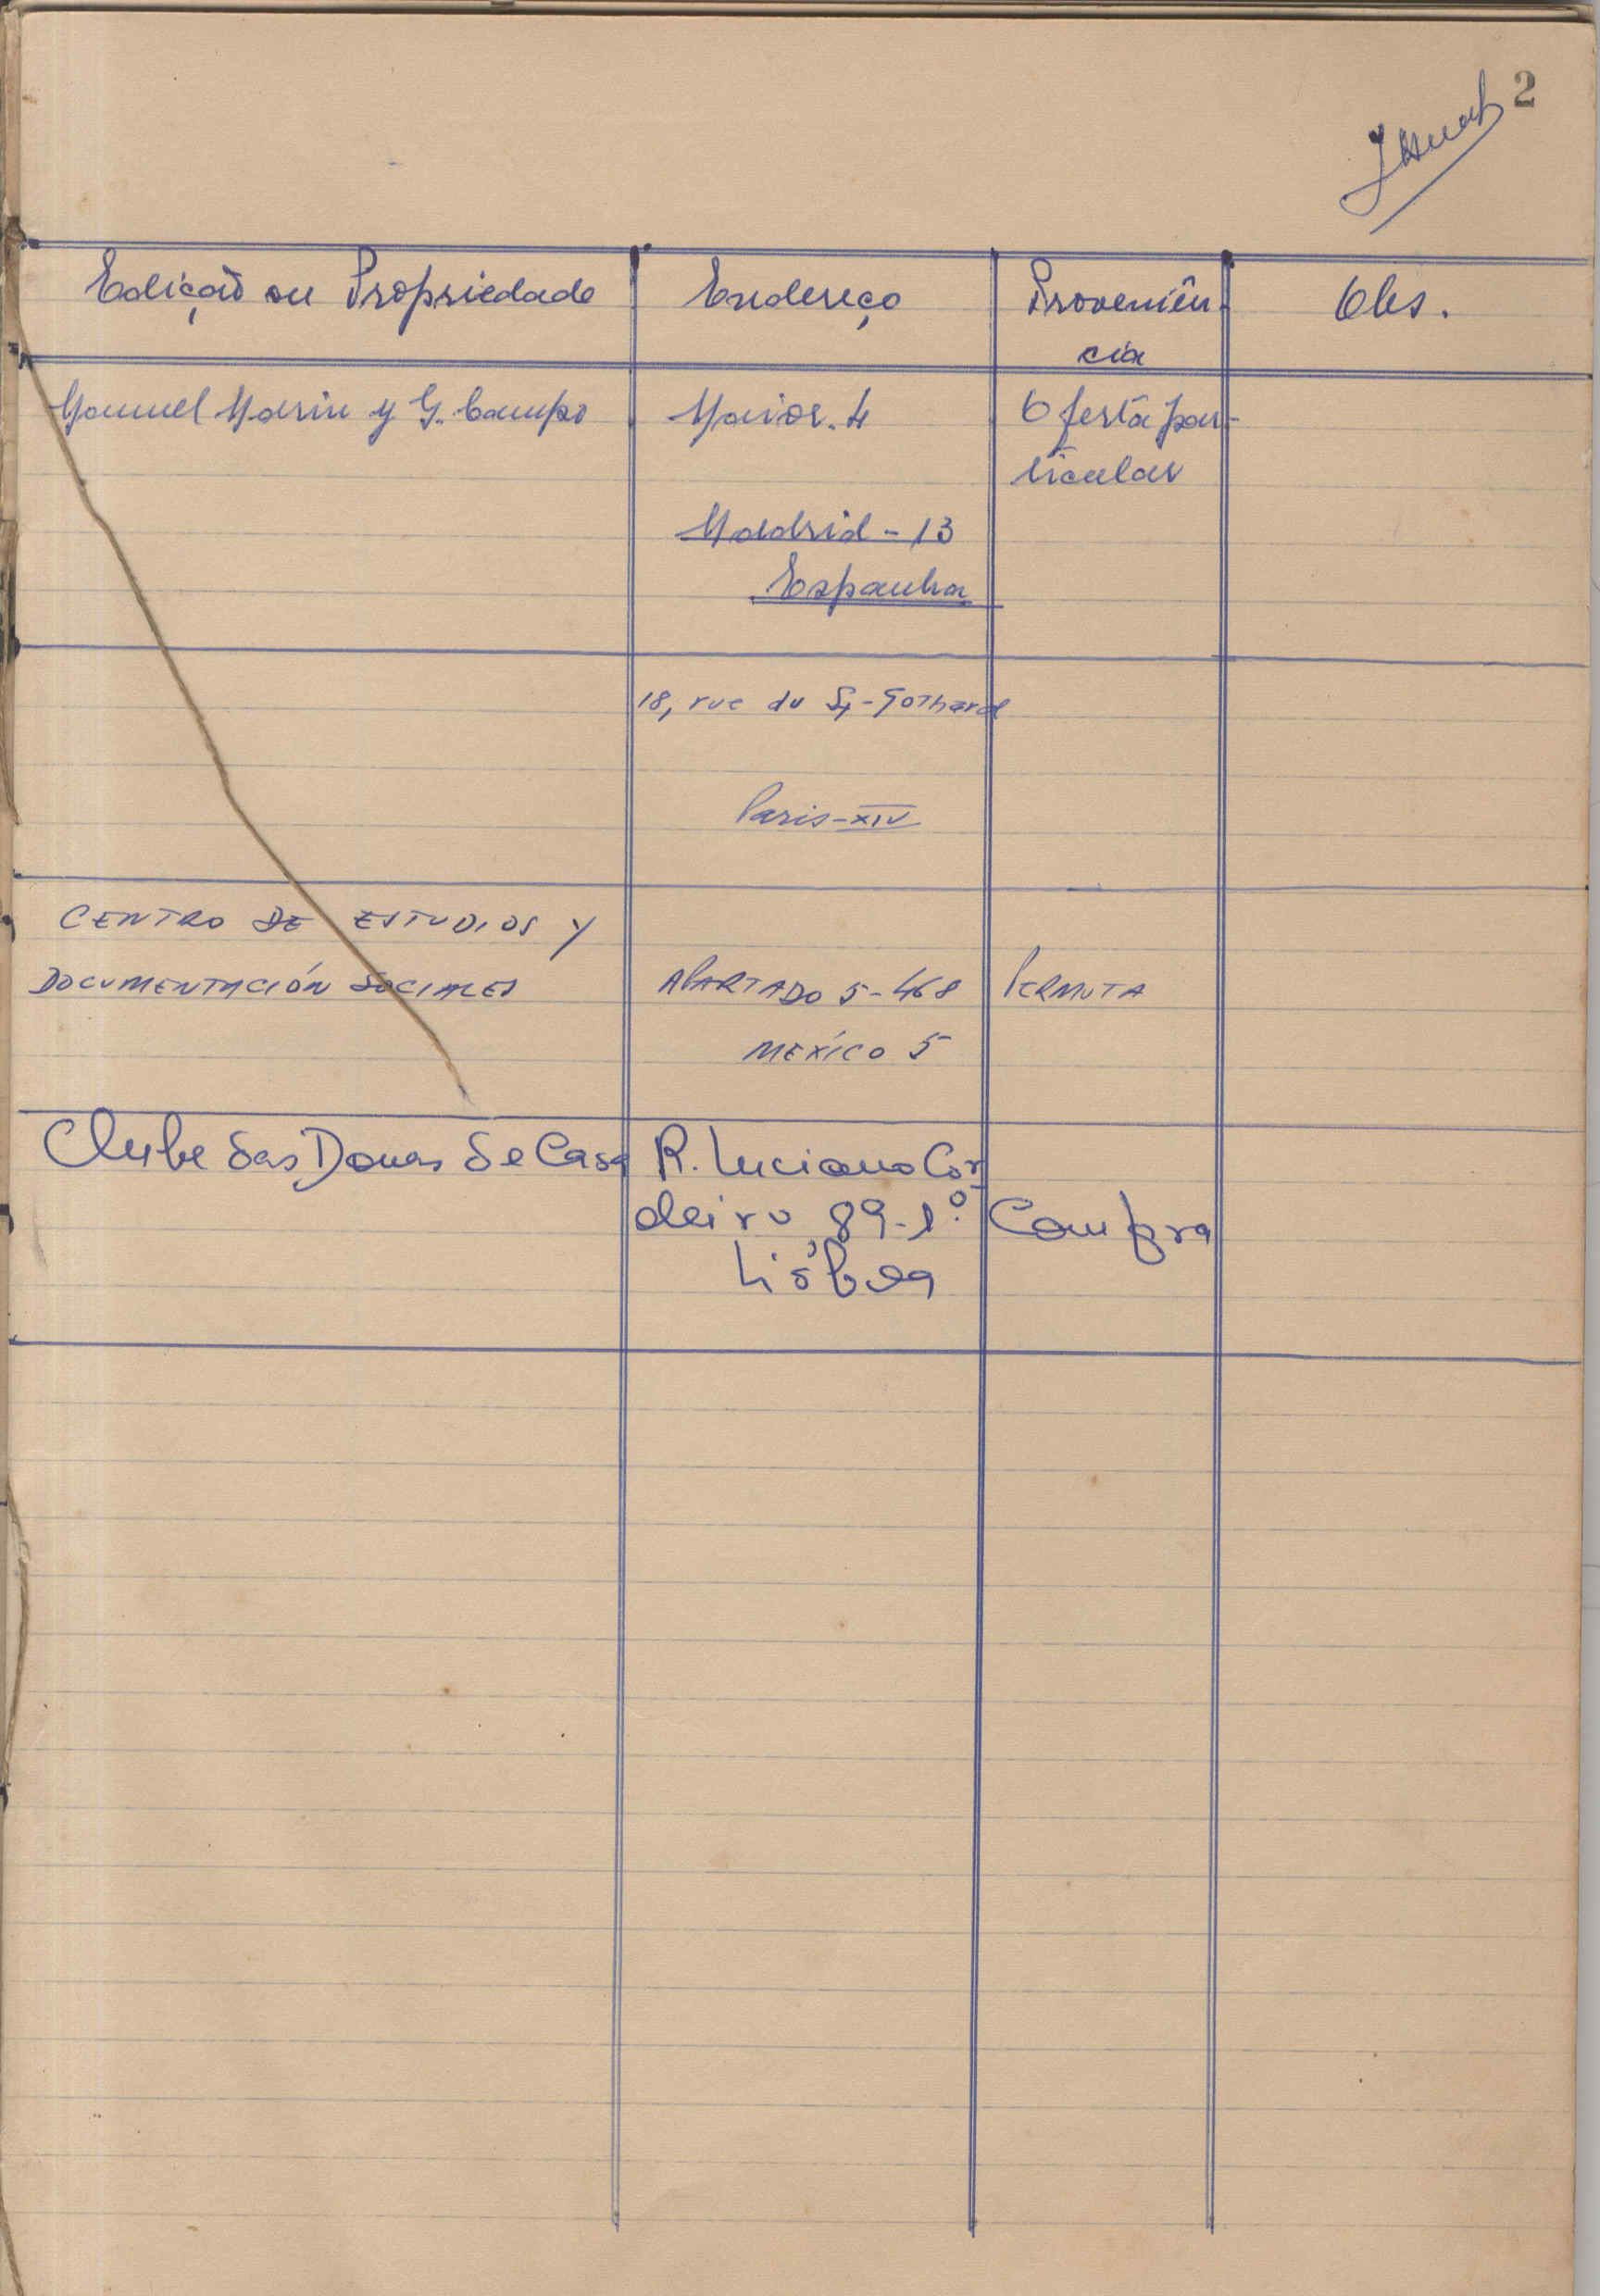 2
Edição ou Propriedade Endereço Proveniên-
cia Obs.
Manuel Marin y G. Campo Maior. 4 Oferta par-
ticular
Madrid - 13
Espanha
18, rue du St-Gothard
Paris-XIV
CENTRO DE ESTUDIOS Y
DOCUMENTACIÓN SOCIALES APARTADO 5-468 PERMUTA
MEXÍCO 5
Clube das Donas de Casa R. Luciano Cor
deiro, 89-1º. Compra
Lisboa